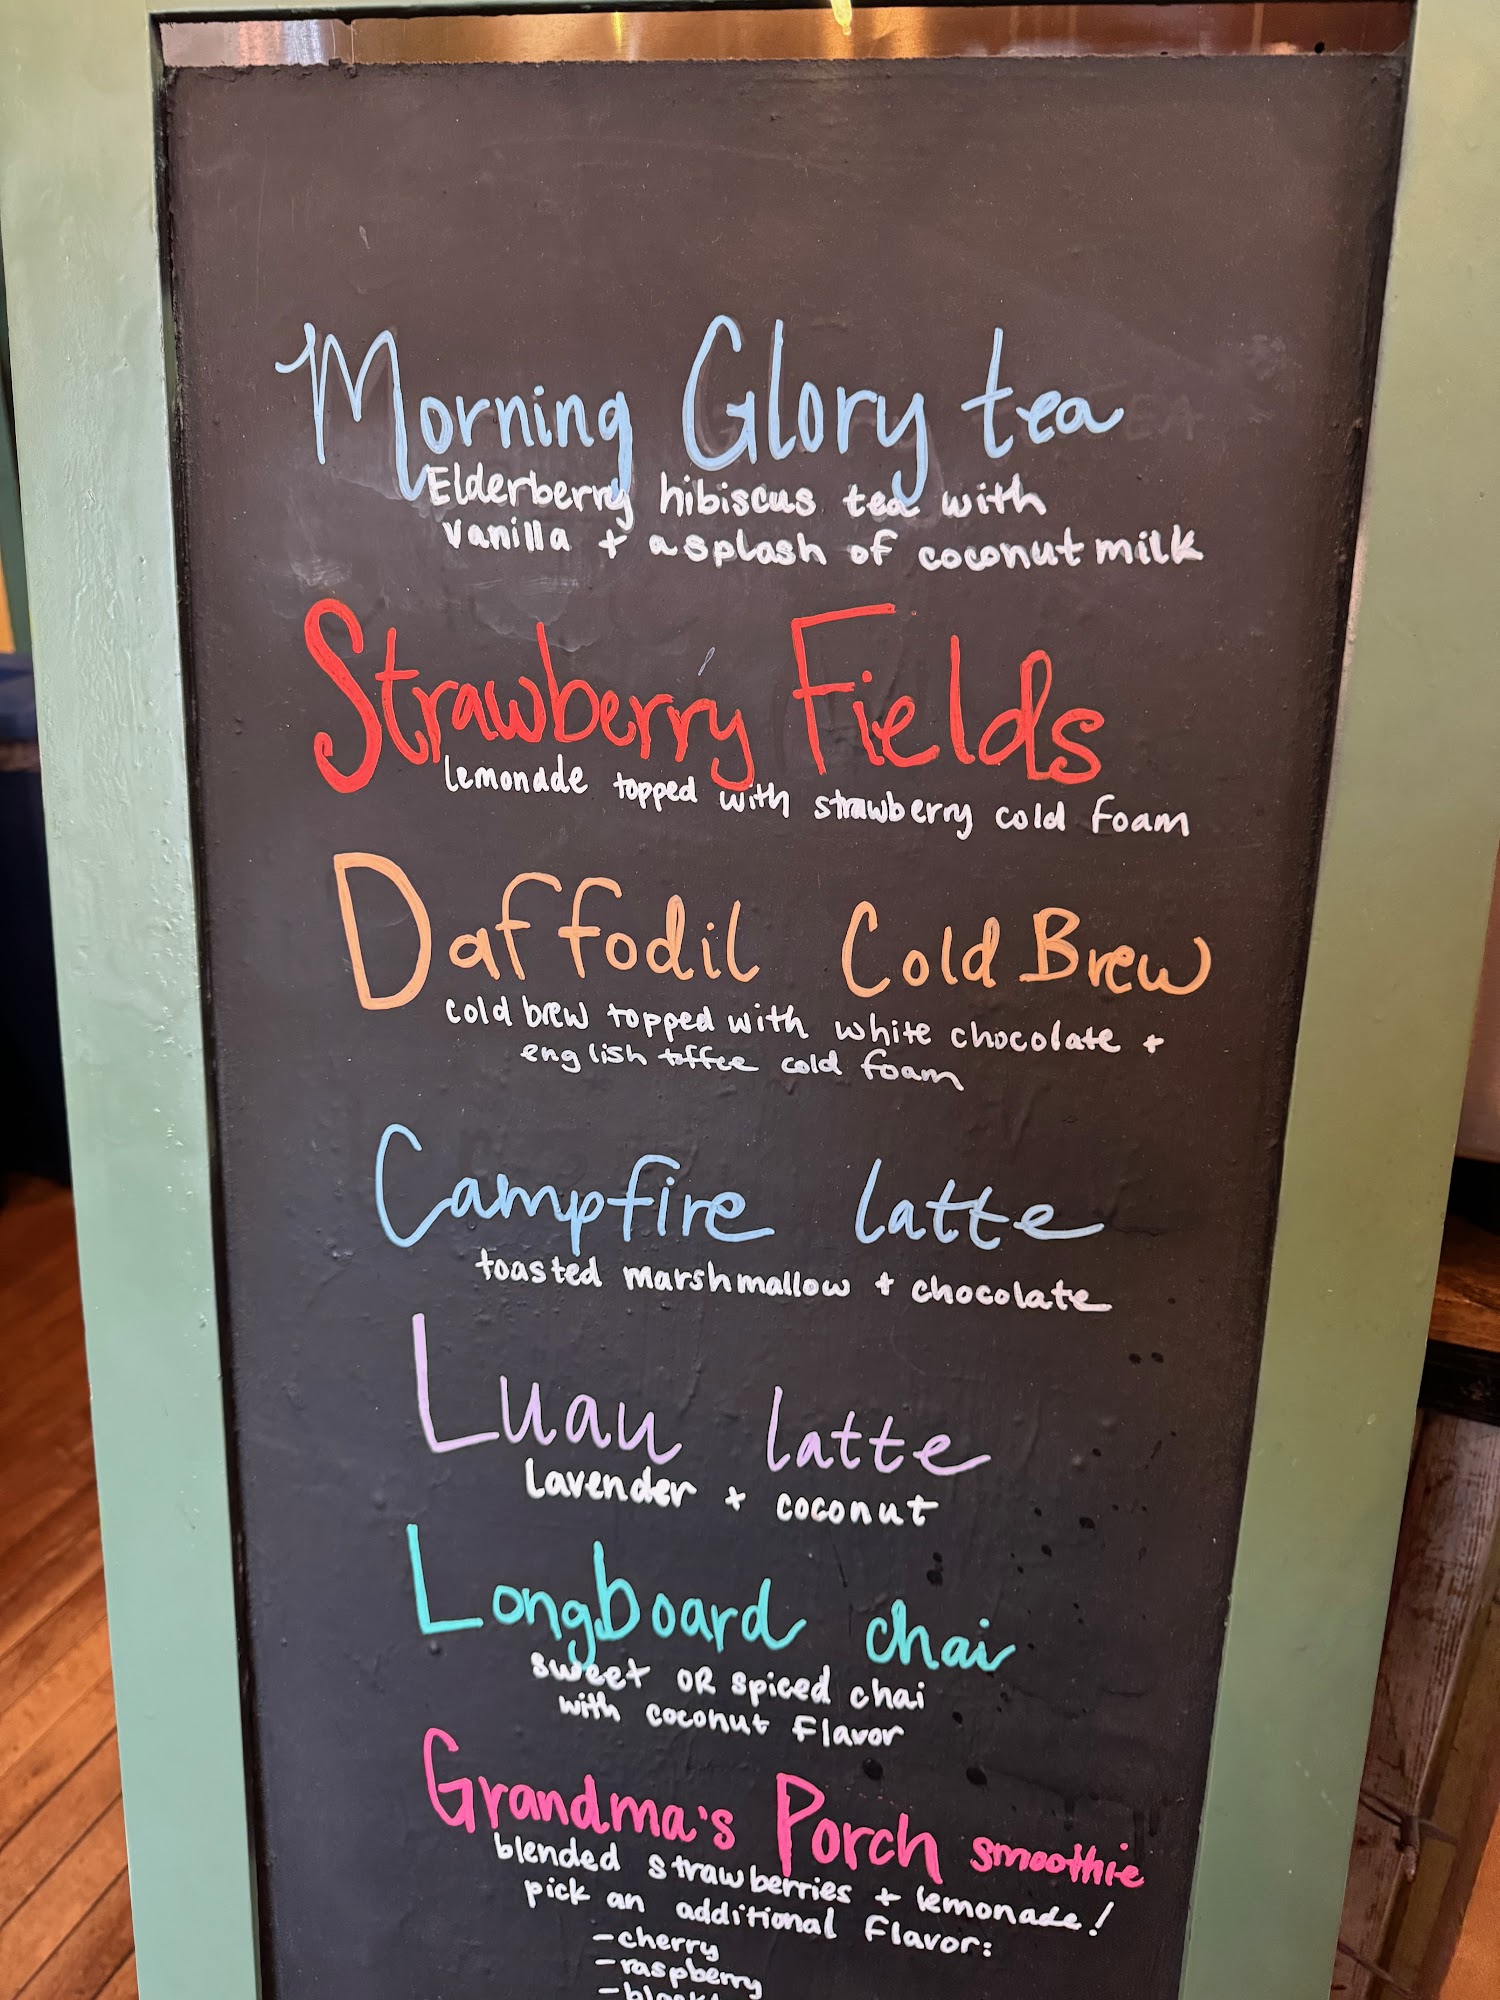 Morning Glory tea
Elderberry hibiscus tea with
vanilla + a splash of coconut milk
Strawberry Fields
lemonade topped with strawberry cold foam
Daffodil Cold Brew
cold brew topped with white chocolate +
english toffee cold foam
Campfire latte
toasted marshmallow + chocolate
Luau latte
Lavender + coconut
Longboard chai
sweet OR spiced chai
with coconut flavor
Grandma's Porch smoothie
blended strawberries + lemonade!
pick an additional flavor:
-cherry
-raspberry